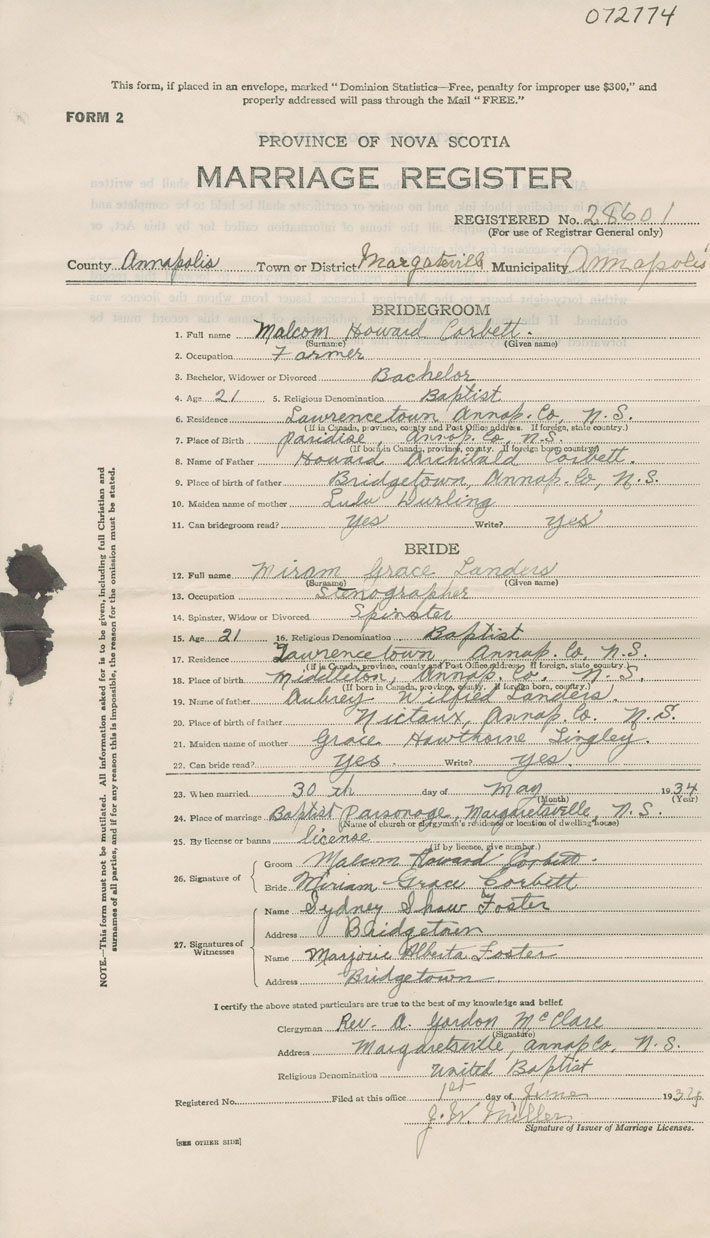 072774
This form, if placed in an envelope, marked "Dominion Statistics—Free, penalty for improper use $300," and
properly addressed will pass through the Mail "FREE."
FORM 2
PROVINCE OF NOVA SCOTIA
MARRIAGE REGISTER
REGISTERED No. 28601
(For use of Registrar General only)
County Annapolis Town or District Margatsville Municipality Annapolis
BRIDEGROOM
1. Full name Malcom Howard Corbett.
(Surname) (Given name)
2. Occupation Farmer
3. Bachelor, Widower or Divorced Bachelor
4. Age 21 5. Religious Denomination Baptist
6. Residence Lawrencetown Annap. Co, N. S.
(If in Canada, province, county and Post Office address. If foreign, state country.)
7. Place of Birth Paridise, Annap. Co, N. S.
(If born in Canada, province, county. If foreign born country)
8. Name of Father Howard Archibald Corbett.
9. Place of birth of father Bridgetown, Annap. Co, N. S.
10. Maiden name of mother Lulu Durling
11. Can bridegroom read? Yes Write? Yes
BRIDE
12. Full name Miram Grace Landers
(Surname) (Given name)
13. Occupation Stenographer
14. Spinster, Widow or Divorced Spinster
15. Age 21 16. Religious Denomination Baptist
17. Residence Lawrencetown Annap. Co, N. S.
(If in Canada, province, county and Post Office address. If foreign, state country.)
18. Place of birth Middleton, Annap. Co, N. S.
(If born in Canada, province, county. If foreign born, country.)
19. Name of father Aubrey Wilfred Landers.
20. Place of birth of father Nictaux, Annap. Co. N. S.
21. Maiden name of mother Grace Hawthorne Lingley.
22. Can bride read? Yes. Write? Yes.
23. When married 30 th day of May 1934
(Month) (Year)
24. Place of marriage Baptist Parsonage, Margaretsville, N. S.
(Name of church or clergyman's residence or location of dwelling house)
25. By license or banns license
(If by licence, give number.)
26. Signature of
Groom Malcom Howard Corbett.
Bride Miriam Grace Corbett
27. Signatures of Witnesses
Name Sydney Shaw Foster
Address Bridgetown
Name Marjorie Alberta Foster
Address Bridgetown
I certify the above stated particulars are true to the best of my knowledge and belief.
Clergyman Rev. A. Gordon McClare
(Signature)
Address Margaretsville, Annap Co, N. S.
Religious Denomination United Baptist
Registered No. Filed at this office 1st day of June 193
J. W. Miller
Signature of Issuer of Marriage Licenses.
[SEE OTHER SIDE]
NOTE.—This form must not be mutilated. All information asked for is to be given, including full Christian and
surnames of all parties, and if for any reason this is impossible, the reason for the omission must be stated.